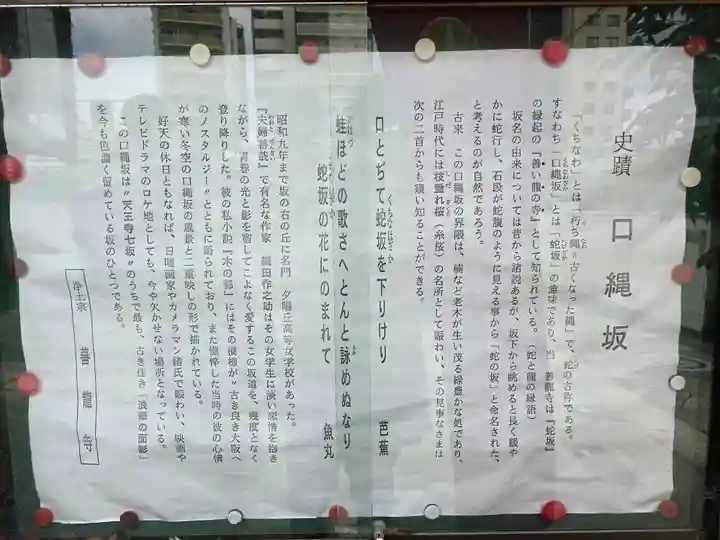 史蹟 口縄坂
「くちなわ」とは、朽ち縄=古くなった縄」で、蛇の古称である。
すなわち「口縄坂」とは「蛇坂」の意味であり、当 善龍寺は『蛇坂
の縁起の『善い龍の寺』として知られている。（蛇と龍の縁語）
坂名の由来については昔から諸説あるが、坂下から眺めると長く緩や
かに蛇行し、石段が蛇腹のように見える事から「蛇の坂」と命名された、
と考えるのが自然であろう。
古来 この口縄坂の界隈は、楠など老木が生い茂る緑豊かな処であり、
江戸時代には枝垂れ桜（糸桜）の名所として賑わい、その見事なさまは
次の二首からも窺い知ることができる。
口とぢて蛇坂を下りけり 芭蕉
蛙ほどの歌さへとんと詠めぬなり
蛇坂の花にのまれて 魚丸
昭和九年まで坂の右の丘に名門 夕陽丘高等女学校があった。
『夫婦善哉』で有名な作家 織田作之助はその女学生に淡い恋情を抱き
ながら、青春の光と影を宿してこよなく愛するこの坂道を、幾度となく
登り降りした。彼の私小説『木の都』にはその模様が〝古き良き大阪へ
のノスタルジー〟とともに語られており、また憔悴した当時の彼の心情
が寒い冬空の口縄坂の風景と二重映しの形で描かれている。
好天の休日ともなれば、日曜画家やカメラマン諸氏で賑わい、映画や
テレビドラマのロケ地としても、今や欠かせない場所となっている。
この口縄坂は〝天王寺七坂〟のうちで最も、古き佳き「浪華の面影」
を今も色濃く留めている坂のひとつである。
浄土宗 善龍寺